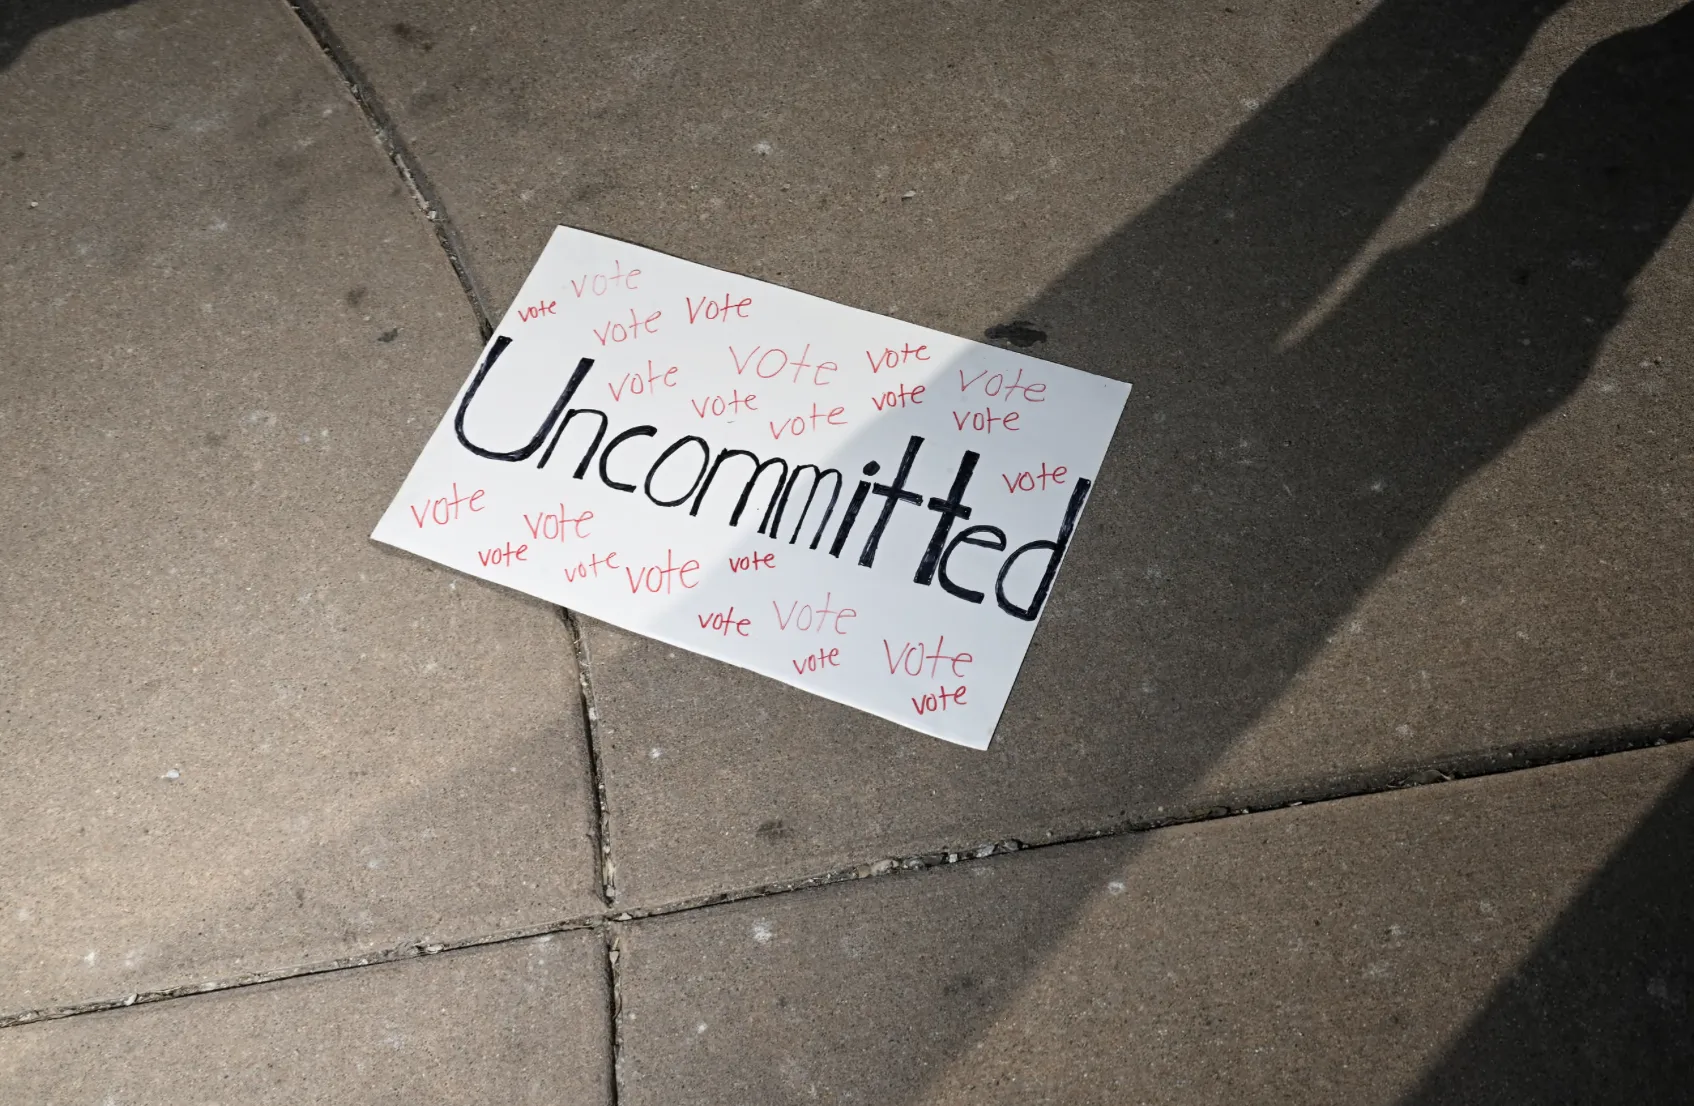 vote
vote
vote
vote
vote
vote
vote
vote
vote
vote
vote
vote
vote
vote
Uncommitted
vote
vote
vote
vote
vote
vote
vote
vote
vote
vote
vote